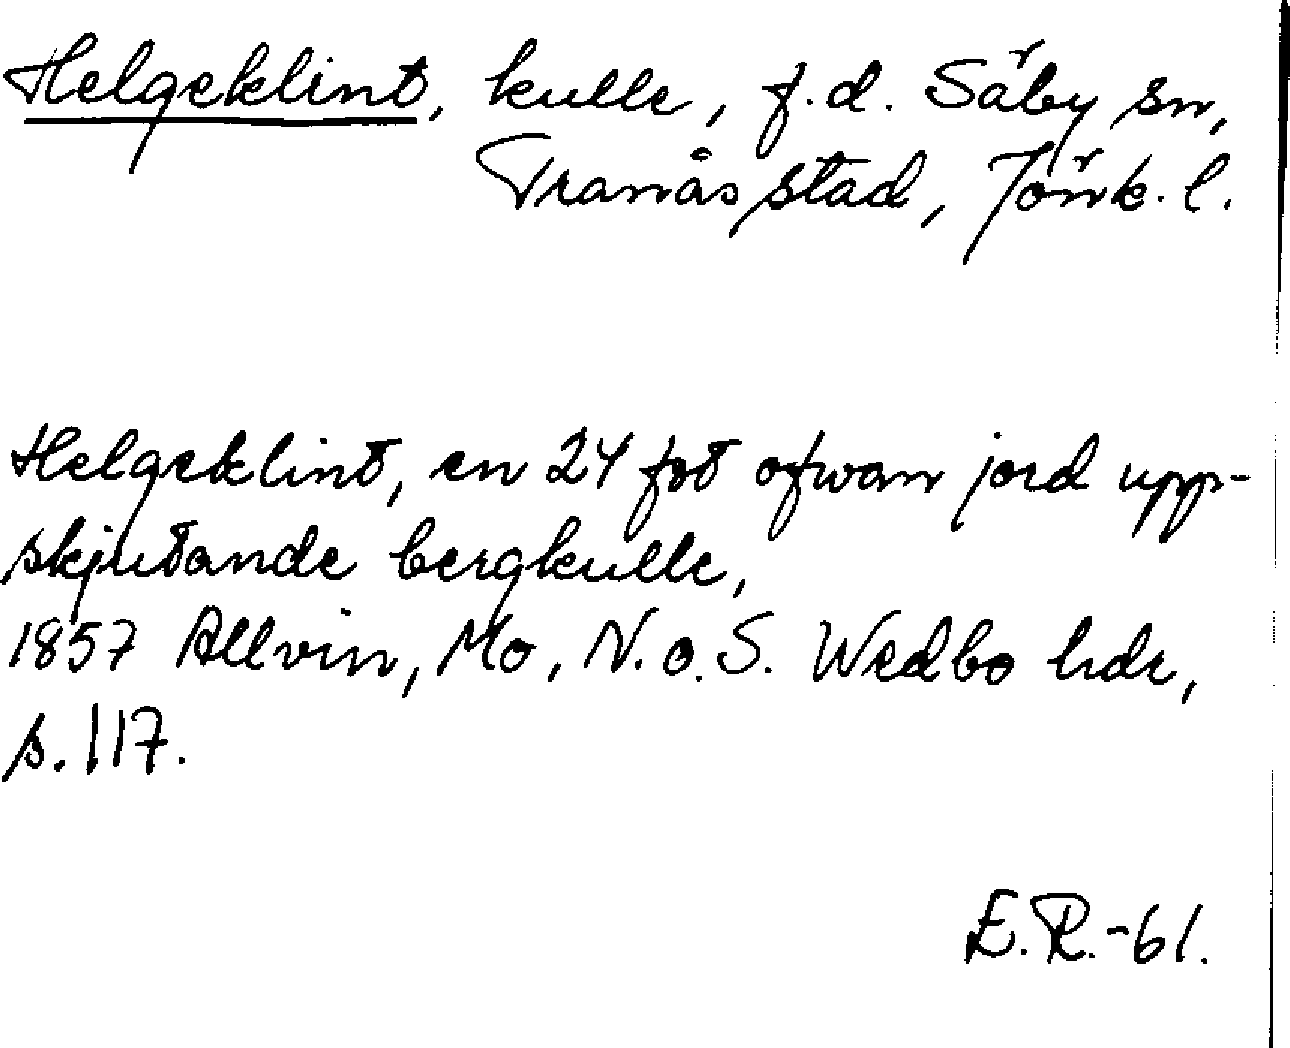 Helgeklint, kulle, f.d. Säby sn,
Tranås stad, Jönk. l.
Helgeklint, en 24 fot ofwan jord upp-
skjutande bergkulle,
1857 Allvin, Mo, N. o. S. Wedbo hdr,
s. 117.
E.R.-61.